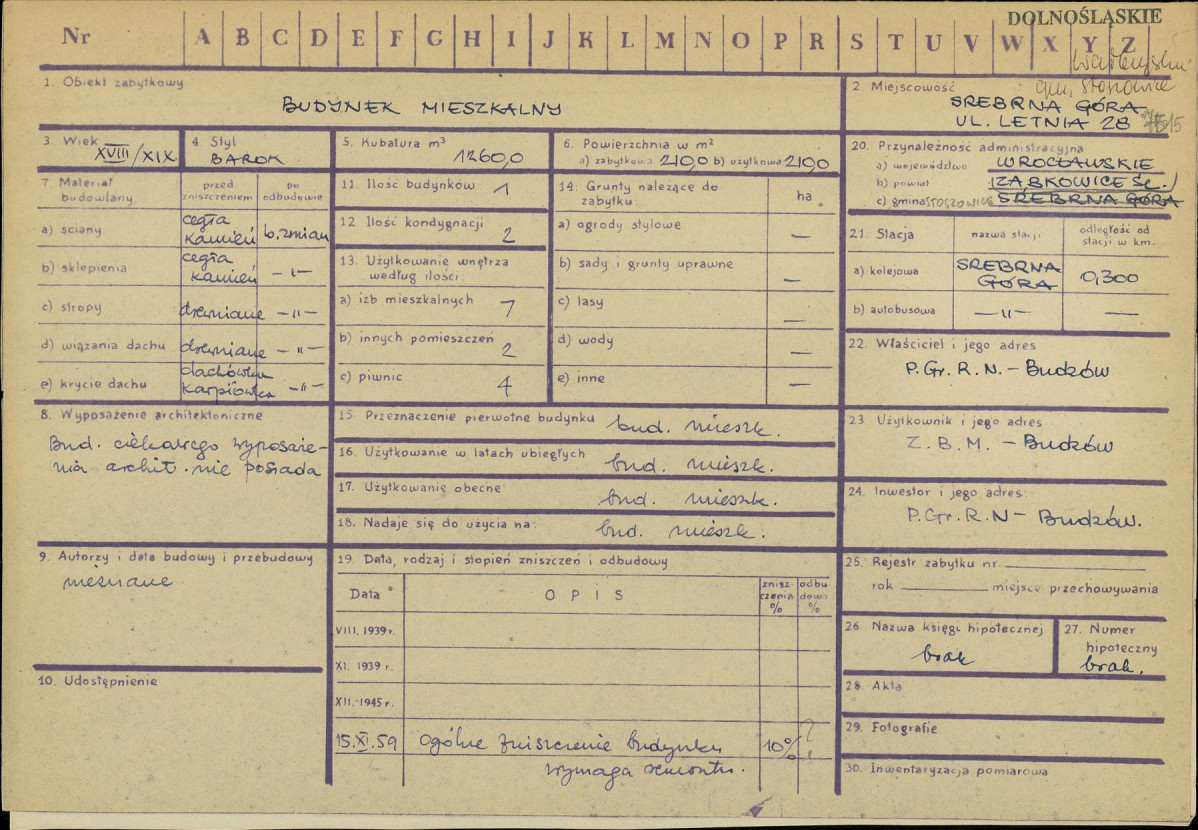 DOLNOŚLĄSKIE
Nr A B C D E F G H I J K L M N O P R S T U V W X Y Z
gm. Stoszowice
1. Obiekt zabytkowy
BUDYNEK MIESZKALNY
2. Miejscowość
SREBRNA GÓRA
UL. LETNIA 28
15
3. Wiek
XVIII/XIX
4. Styl
BAROK
5. Kubatura m³
1260,0
6. Powierzchnia w m²
a) zabytkowa 210,0 b) użytkowa 219,0
7. Materiał budowlany
przed zniszczeniem
po odbudowie
a) ściany
cegła
kamień
b. zmian
b) sklepienia
cegła
kamień
—"—
c) stropy
drewniane —"—
d) wiązania dachu
drewniane —"—
e) krycie dachu
dachówka
karpiówka —"—
8. Wyposażenie architektoniczne
Bud. ciekawego wyposaże-
nia archit. nie posiada
9. Autorzy i data budowy i przebudowy
nieznane
10. Udostępnienie
11. Ilość budynków
1
12. Ilość kondygnacji
2
13. Użytkowanie wnętrza
według ilości:
a) izb mieszkalnych
7
b) innych pomieszczeń
2
c) piwnic
4
14. Grunty należące do
zabytku
ha
a) ogrody stylowe
—
b) sady i grunty uprawne
—
c) lasy
—
d) wody
—
e) inne
—
15. Przeznaczenie pierwotne budynku bud. mieszk.
16. Użytkowanie w latach ubiegłych bud. mieszk.
17. Użytkowanie obecne bud. mieszk.
18. Nadaje się do użycia na: bud. mieszk.
19. Data, rodzaj i stopień zniszczeń i odbudowy
Data
OPIS
znisz-
czenia
%
odbu-
dowa
%
VIII. 1939 r.
XI. 1939 r.
XII.-1945 r.
15.XI.59 Ogólne zniszczenie budynku 10% ?
wymaga remontu.
20. Przynależność administracyjna
a) województwo WROCŁAWSKIE
b) powiat (ZĄBKOWICE ŚL.)
c) gmina STOSZOWICE SREBRNA GÓRA
21. Stacja
nazwa stacji
odległość od
stacji w km.
a) kolejowa
SREBRNA
GÓRA
0,300
b) autobusowa
—"—
—
22. Właściciel i jego adres
P.Gr.R.N. – Budzów
23 Użytkownik i jego adres
Z.B.M. – Budzów
24. Inwestor i jego adres:
P.Gr.R.N – Budzów.
25. Rejestr zabytku nr.
rok miejsce przechowywania
26 Nazwa księgi hipotecznej
brak
27. Numer
hipoteczny
brak.
28. Akta
29. Fotografie
30. Inwentaryzacja pomiarowa